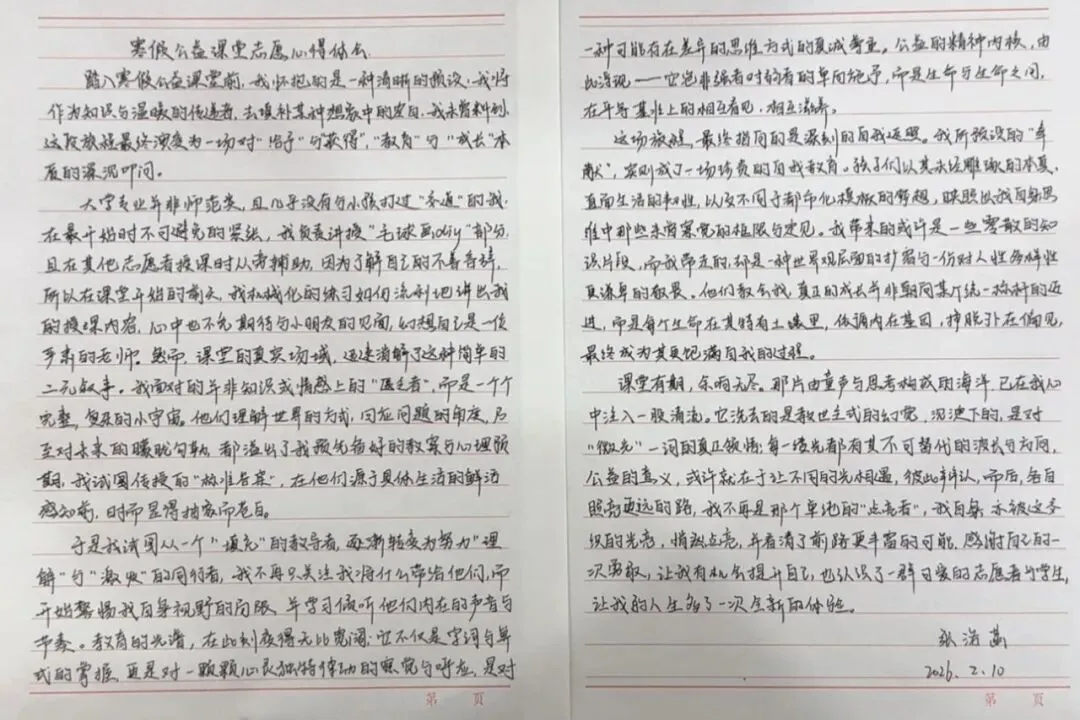 寒假公益课堂志愿心得体会
踏入寒假公益课堂前，我怀抱的是一种清晰的预设，我将
作为知识与温暖的传递者，去填补某种想象中的空白，我未曾料到
这段旅程最终演变为一场对“给予”与获得”，“教育”与“成长”本
质的深沉叩问。
大学专业并非师范类，且几乎没有与小孩打过“交道”的我
在最开始时不可避免的紧张，我负责讲授“毛球画diy”部分，
且在其他志愿者授课时从旁辅助，因为了解自己的不善言辞，
所以在课堂开始的前夕，我机械化的练习如何流利地讲出我
的授课内容，心中也不免期待与小朋友的见面，幻想自己是一位
专业的老师。然而，课堂的真实场域，迅速消解了这种简单的
二元叙事。我面对的并非知识或情感上的“匮乏者”，而是一个个
完整，复杂的小宇宙。他们理解世界的方式，回应问题的角度，乃
至对未来的朦胧勾勒，都溢出了我预先备好的教案与心理预
期。我试图传授的“标准答案”，在他们源于具体生活的鲜活
感知前，时而显得抽象而苍白。
于是我试图从一个“填充”的教导者，逐渐转变为努力“理
解”与“激发”的同行者，我不再只关注我将什么带给他们，而
开始警惕我自身视野的局限，并学习倾听他们内在的声音与
节奏。教育的光谱，在此刻变得无比宽阔：它不仅是字词与算
式的掌握，更是对一颗颗心灵独特律动的察觉与呼应，是对
第 页
一种可能存在差异的思维方式的真诚尊重。公益的精神内核，由
此浮现——它绝非强者对弱者的单向施予，而是生命与生命之间，
在平等基准上的相互看见，相互滋养。
这场旅程，最终指向的是深刻的自我返照。我所预设的“奉
献”，实则成了一场场宝贵的自我教育。孩子们以其未经雕琢的本真，
直面生活的韧性，以及不同于都市化模板的梦想，映照出我自身思
维中那些未曾察觉的框限与定见。我带来的或许是一些零散的知
识片段，而我带走的，却是一种世界观层面的扩容与一份对人性多样性
更谦卑的敬畏。他们教会我，真正的成长并非朝向某个统一标杆的迈
进，而是每个生命在其特有土壤里，依循内在基因，挣脱外在偏见，
最终成为其更饱满自我的过程。
课堂有期，余响无尽。那片由童声与思考构成的海洋，已在我心
中注入一股清流。它洗去的是救世主式的幻觉，沉淀下的，是对
“微光”一词的真正领悟：每一缕光都有其不可替代的波长与方向，
公益的意义，或许就在于让不同的光相遇，彼此辨认，而后，各自
照亮更远的路，我不再是那个单纯的“点亮者”，我自身，亦被这交
织的光亮，悄然点亮，并看清了前路更丰富的可能，感谢自己的一
次勇敢，让我有机会提升自己，也认识了一群可爱的志愿者与学生，
让我的人生多了一次全新的体验。
2026.2.10
第 页